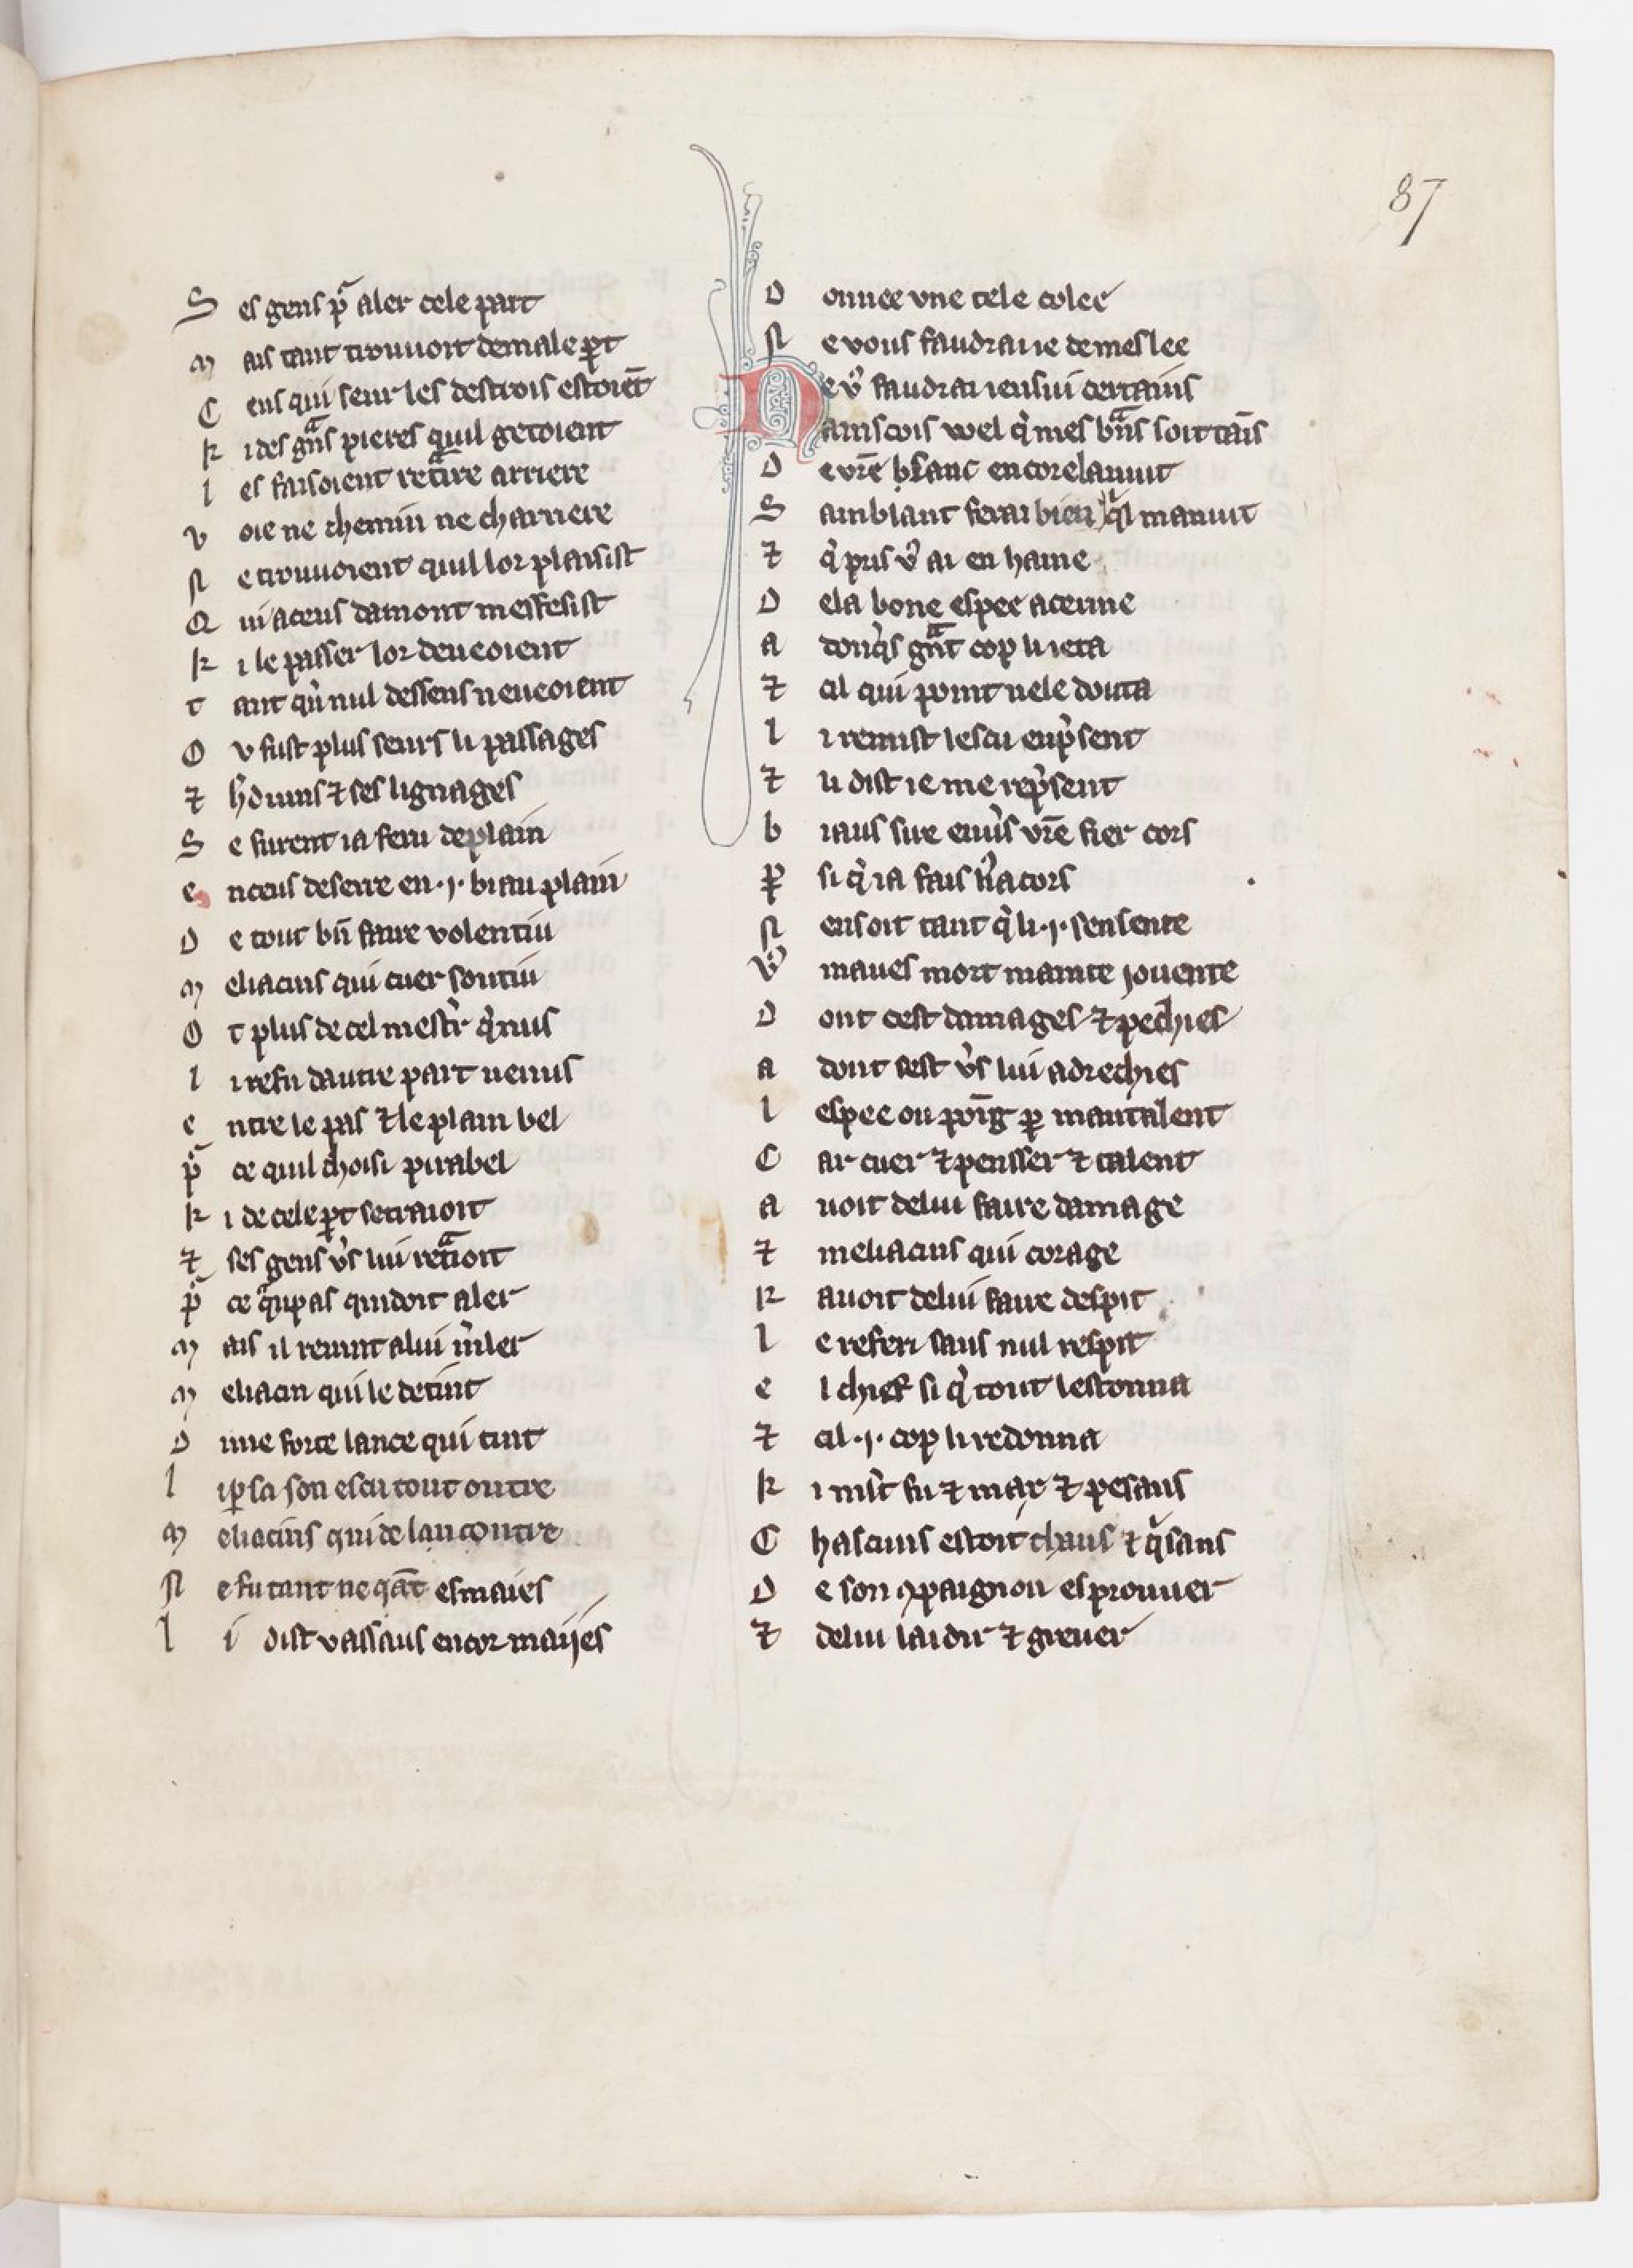 87
S es gens pͬ aler cele part
M ais tant trouuoit demale ꝑt
C eus qui seur les destrois estoiẽt
K i des gͣns pieres quil getoient
L es faisoient retͣire arriere
V oie ne chemin ne charriere
N e trouuoient quil lor plaisist
Q ui aceus damont mesfesist
K i le passer lor deueoient
T ant qͥ nul dessens neueoient
O v fust plus seurs li passages
⁊ hͦdiuins ⁊ ses lignages
S e furent ia feru deplain
E nceus deserre en ·j· biau plain
D e tout bn̄ faire volentiu
M eliacins qui cuer sontiu
O t plus de cel mestͥr qͥ nus
L i refu dautre part uenus
E ntre le pas ⁊ le plain bel
pͬ ce quil choisi pirabel
K i de cele ꝑt se traioit
⁊ ses gens vͥs lui retͣioit
pͬ ce qͣu pas quidoit aler
M ais il reuint alui mͥler
M eliacin qui le detint
D une forte lance qui tint
L i ꝑsa son escu tout outre
M eliacins qui de lancontre
N e fu tant ne qͣt esmaies
L i dist vassaus encor maijes
D onnee vne tele colee
N e vous faudraiie de meslee
N e vͦ faudrai iensui certains
A ainscois woel qͥ mes bͣns soit tains
D e vrē b̧ſanc encore lanuit
S amblant ferai bien qͥl manuit
⁊ qͥ pris vͦ ai en haine
D ela bone espee acerine
A donqͥs gͣnt cop li ieta
⁊ cil qui point nele douta
L i remist lescu enpͥsent
⁊ li dist ie me repͥsent
B iaus sire enuͥs vrē fier cors
P si qͥ ia fais nͥ acors
N en soit tant qͥ li ·j· sen sente
Vͦ maues mort mainte jouente
D ont cest damages ⁊ pechies
A dont sest vͥs lui adrechies
L espee ou poīg ꝑ mautalent
C ar cuer ⁊ pensser ⁊ talent
A uoit delui faire damage
⁊ meliacins qui corage
R auoit delui faire despit
L e referi sans nul respit
E l chief si qͥ tout lestonna
⁊ cil ·j· cop li redonna
K i mlt̄ fu ⁊ mar ⁊ pesans
C hascuns estoit chaus ⁊ qͥsans
D e son ꝯpaignon esprouuer
⁊ delui laidir ⁊ greuer